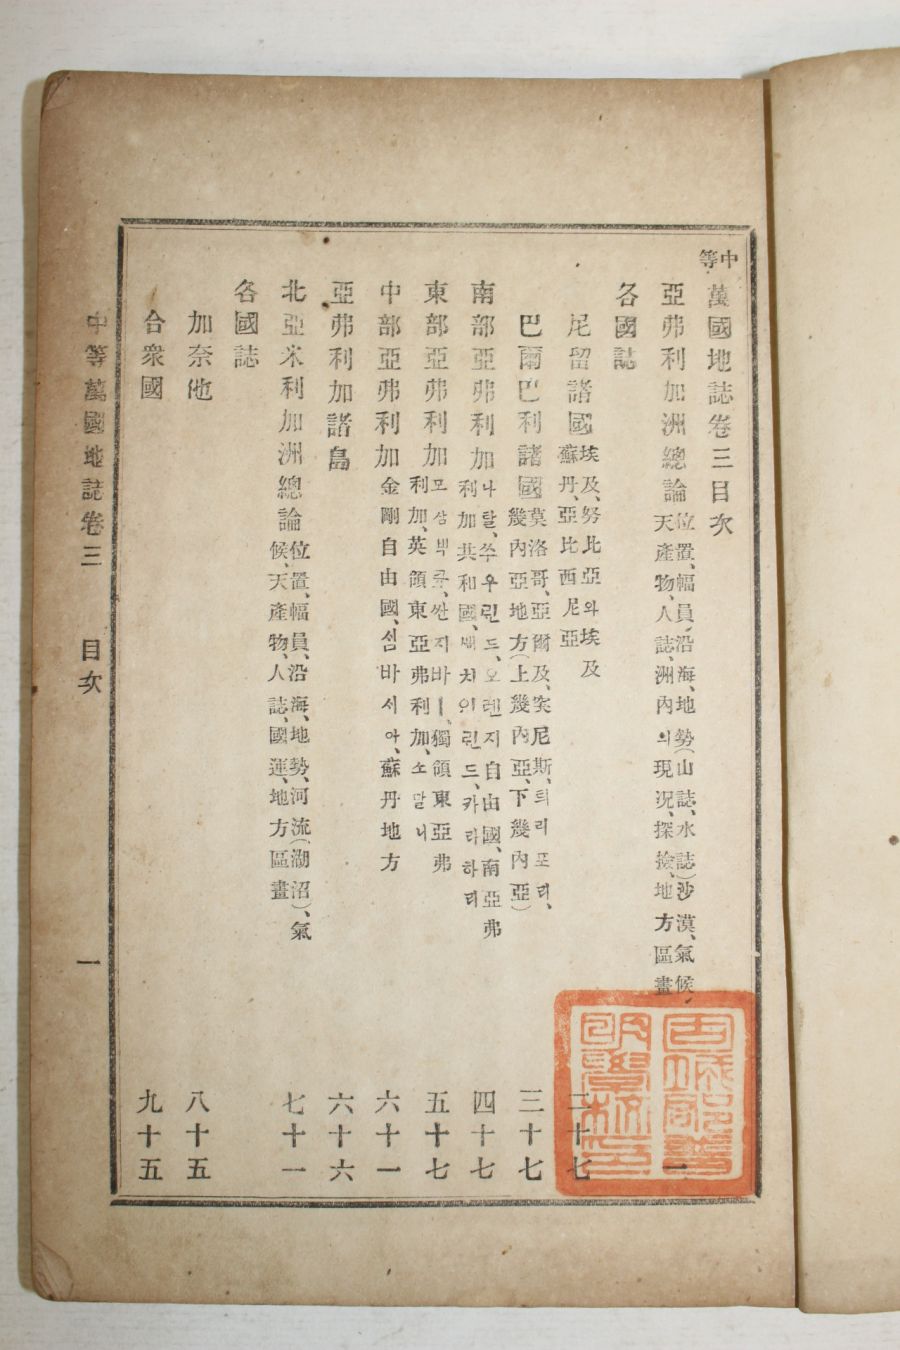 中等 萬國地誌卷三目次
亞弗利加洲總論 位置、幅員、沿海、地勢(山誌、水誌)沙漠、氣候、天產物、人誌、洲內의現況、探撿、地方區畫 一
各國誌
尼留諸國 埃及、努比亞와埃及蘇丹、亞比西尼亞 二十七
巴爾巴利諸國 莫洛哥、亞爾及、突尼斯、틔리포리、幾內亞地方(上幾內亞、下幾內亞) 三十七
南部亞弗利加 나탈、쑤우린드、오렌지自由國、南亞弗利加共和國、베치인린드、카라하리 四十七
東部亞弗利加 모삼빅큐、싼지바ㅣ、獨領東亞弗利加、英領東亞弗利加、소말니 五十七
中部亞弗利加 金剛自由國、섬바시아、蘇丹地方 六十一
亞弗利加諸島 六十六
北亞米利加洲總論 位置、幅員、沿海、地勢、河流(湖沼)、氣候、天產物、人誌、國運、地方區畫 七十一
各國誌
加奈他 八十五
合衆國 九十五
中等萬國地誌卷三 目次 一